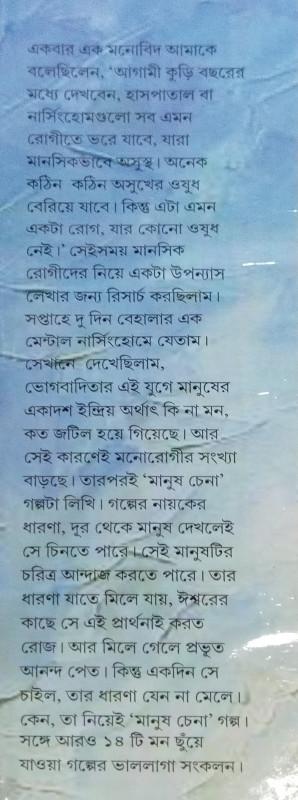 একবার এক মনোবিদ আমাকে
বলেছিলেন, 'আগামী কুড়ি বছরের
মধ্যে দেখবেন, হাসপাতাল বা
নার্সিংহোমগুলো সব এমন
রোগীতে ভরে যাবে, যারা
মানসিকভাবে অসুস্থ। অনেক
কঠিন কঠিন অসুখের ওষুধ
বেরিয়ে যাবে। কিন্তু এটা এমন
একটা রোগ, যার কোনো ওষুধ
নেই।' সেইসময় মানসিক
রোগীদের নিয়ে একটা উপন্যাস
লেখার জন্য রিসার্চ করছিলাম।
সপ্তাহে দু দিন বেহালার এক
মেন্টাল নার্সিংহোমে যেতাম।
সেখানে দেখেছিলাম,
ভোগবাদিতার এই যুগে মানুষের
একাদশ ইন্দ্রিয় অর্থাৎ কি না মন,
কত জটিল হয়ে গিয়েছে। আর
সেই কারণেই মনোরোগীর সংখ্যা
বাড়ছে। তারপরই 'মানুষ চেনা'
গল্পটা লিখি। গল্পের নায়কের
ধারণা, দূর থেকে মানুষ দেখলেই
সে চিনতে পারে। সেই মানুষটির
চরিত্র আন্দাজ করতে পারে। তার
ধারণা যাতে মিলে যায়, ঈশ্বরের
কাছে সে এই প্রার্থনাই করত
রোজ। আর মিলে গেলে প্রভূত
আনন্দ পেত। কিন্তু একদিন সে
চাইল, তার ধারণা যেন না মেলে।
কেন, তা নিয়েই 'মানুষ চেনা' গল্প।
সঙ্গে আরও ১৪ টি মন ছুঁয়ে
যাওয়া গল্পের ভাললাগা সংকলন।